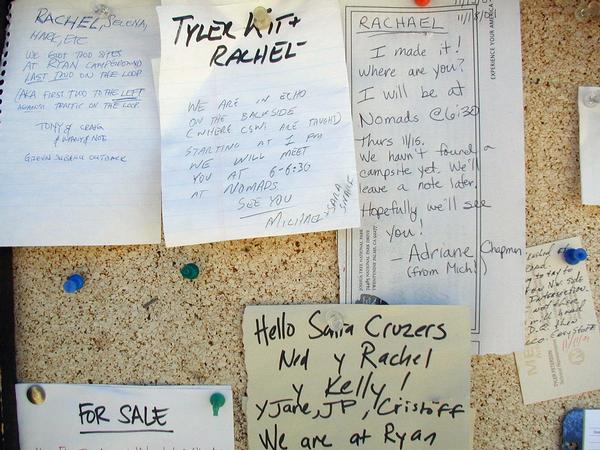 RACHEL, SELENA,
MARC, ETC
WE GOT TWO SITES
AT RYAN CAMPGROUND
LAST TWO ON THE LOOP
(AKA FIRST TWO TO THE LEFT
AGAINST TRAFFIC ON THE LOOP)
TONY & CRAIG
GREEN SUBARU OUTBACK
TYLER KIT +
RACHEL -
WE ARE IN ECHO
ON THE BACKSIDE
(WHERE CSWI ARE TAUGHT)
STARTING AT 1 PM
WE WILL MEET
YOU AT 6-6:30
AT NOMADS
SEE YOU
MICHAEL + SARA
RACHAEL
I made it!
where are you?
I will be at
Nomads @ 6:30
Thurs 11/15.
We havn't found a
campsite yet. We'll
leave a note later.
Hopefully we'll see
you!
- Adriane Chapman
(from Mich.)
EXPERIENCE YOUR AMERICA
JOSHUA TREE NATIONAL PARK
74485 NATIONAL PARK DRIVE
TWENTYNINE PALMS, CA 92277
Hello Santa Cruzers
Ned y Rachel
y Kelly!
y Jane, JP, Cristoff
We are at Ryan
FOR SALE